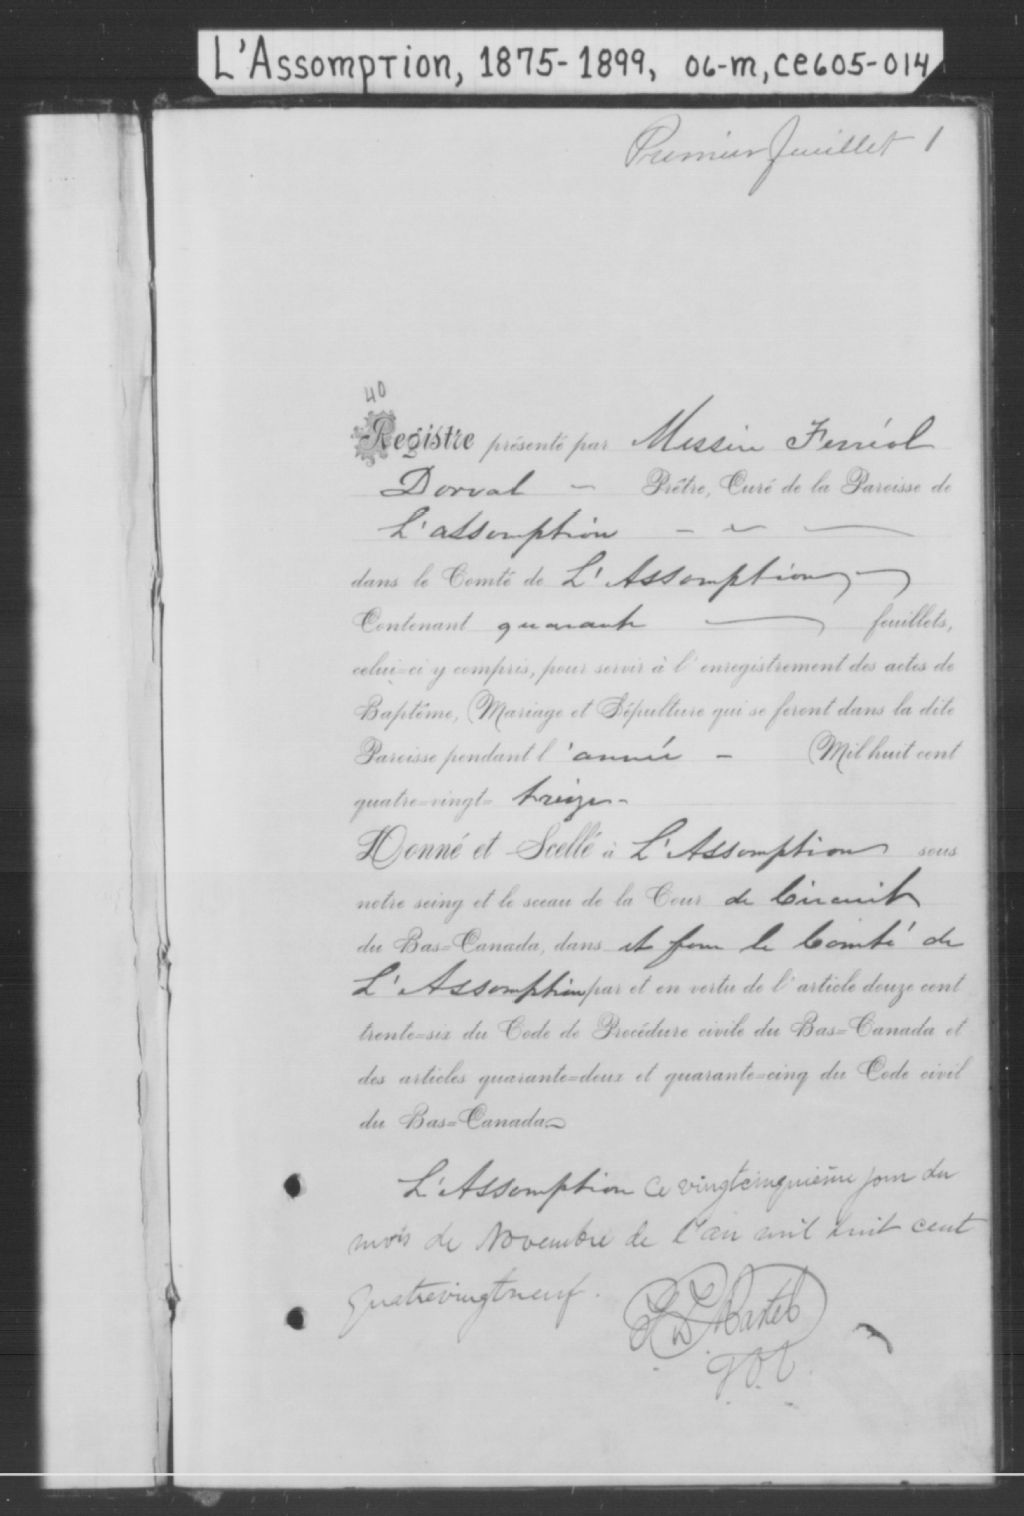 L'Assomption, 1875-1899, 06-M, CE605-014
Premier feuillet 1
40
Registre présenté par Messire Ferréol
Dorval – Prêtre, Curé de la Paroisse de
L'assomption – – –
dans le Comté de L'Assomption
Contenant quarante feuillets,
celui-ci y compris, pour servir à l'enregistrement des actes de
Baptême, Mariage et Sépulture qui se feront dans la dite
Paroisse pendant l'année – Mil huit cent
quatre-vingt- treize –
Donné et Scellé à L'Assomption sous
notre seing et le sceau de la Cour de Circuit
du Bas-Canada, dans et pour le Comté de
L'Assomption par et en vertu de l'article douze cent
trente-six du Code de Procédure civile du Bas-Canada et
des articles quarante-deux et quarante-cinq du Code civil
du Bas-Canada
L'Assomption ce vingtcinquième jour du
mois de Novembre de l'an mil huit cent
quatrevingtneuf.
Martel